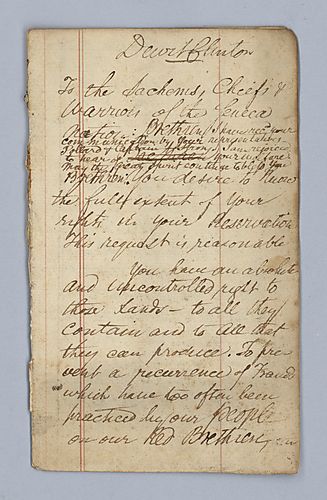 Dewit Clinton
To the Sachems, Chiefs &
Warriors of the Seneca
Nation: Brethren I have rec'd your
communication by your representatives
I am rejoiced
to hear of your welfare
may the great Spirit continue to bless you
Brethren. You desire to know
the full extent of your
rights in your Reservation
This request is reasonable
You have an absolute
and uncontrolled right to
those Lands – to all they
contain and to all that
they can produce. To pre-
vent a recurrence of Frauds
which have too often been
practiced by our people
on our Red Brethren,